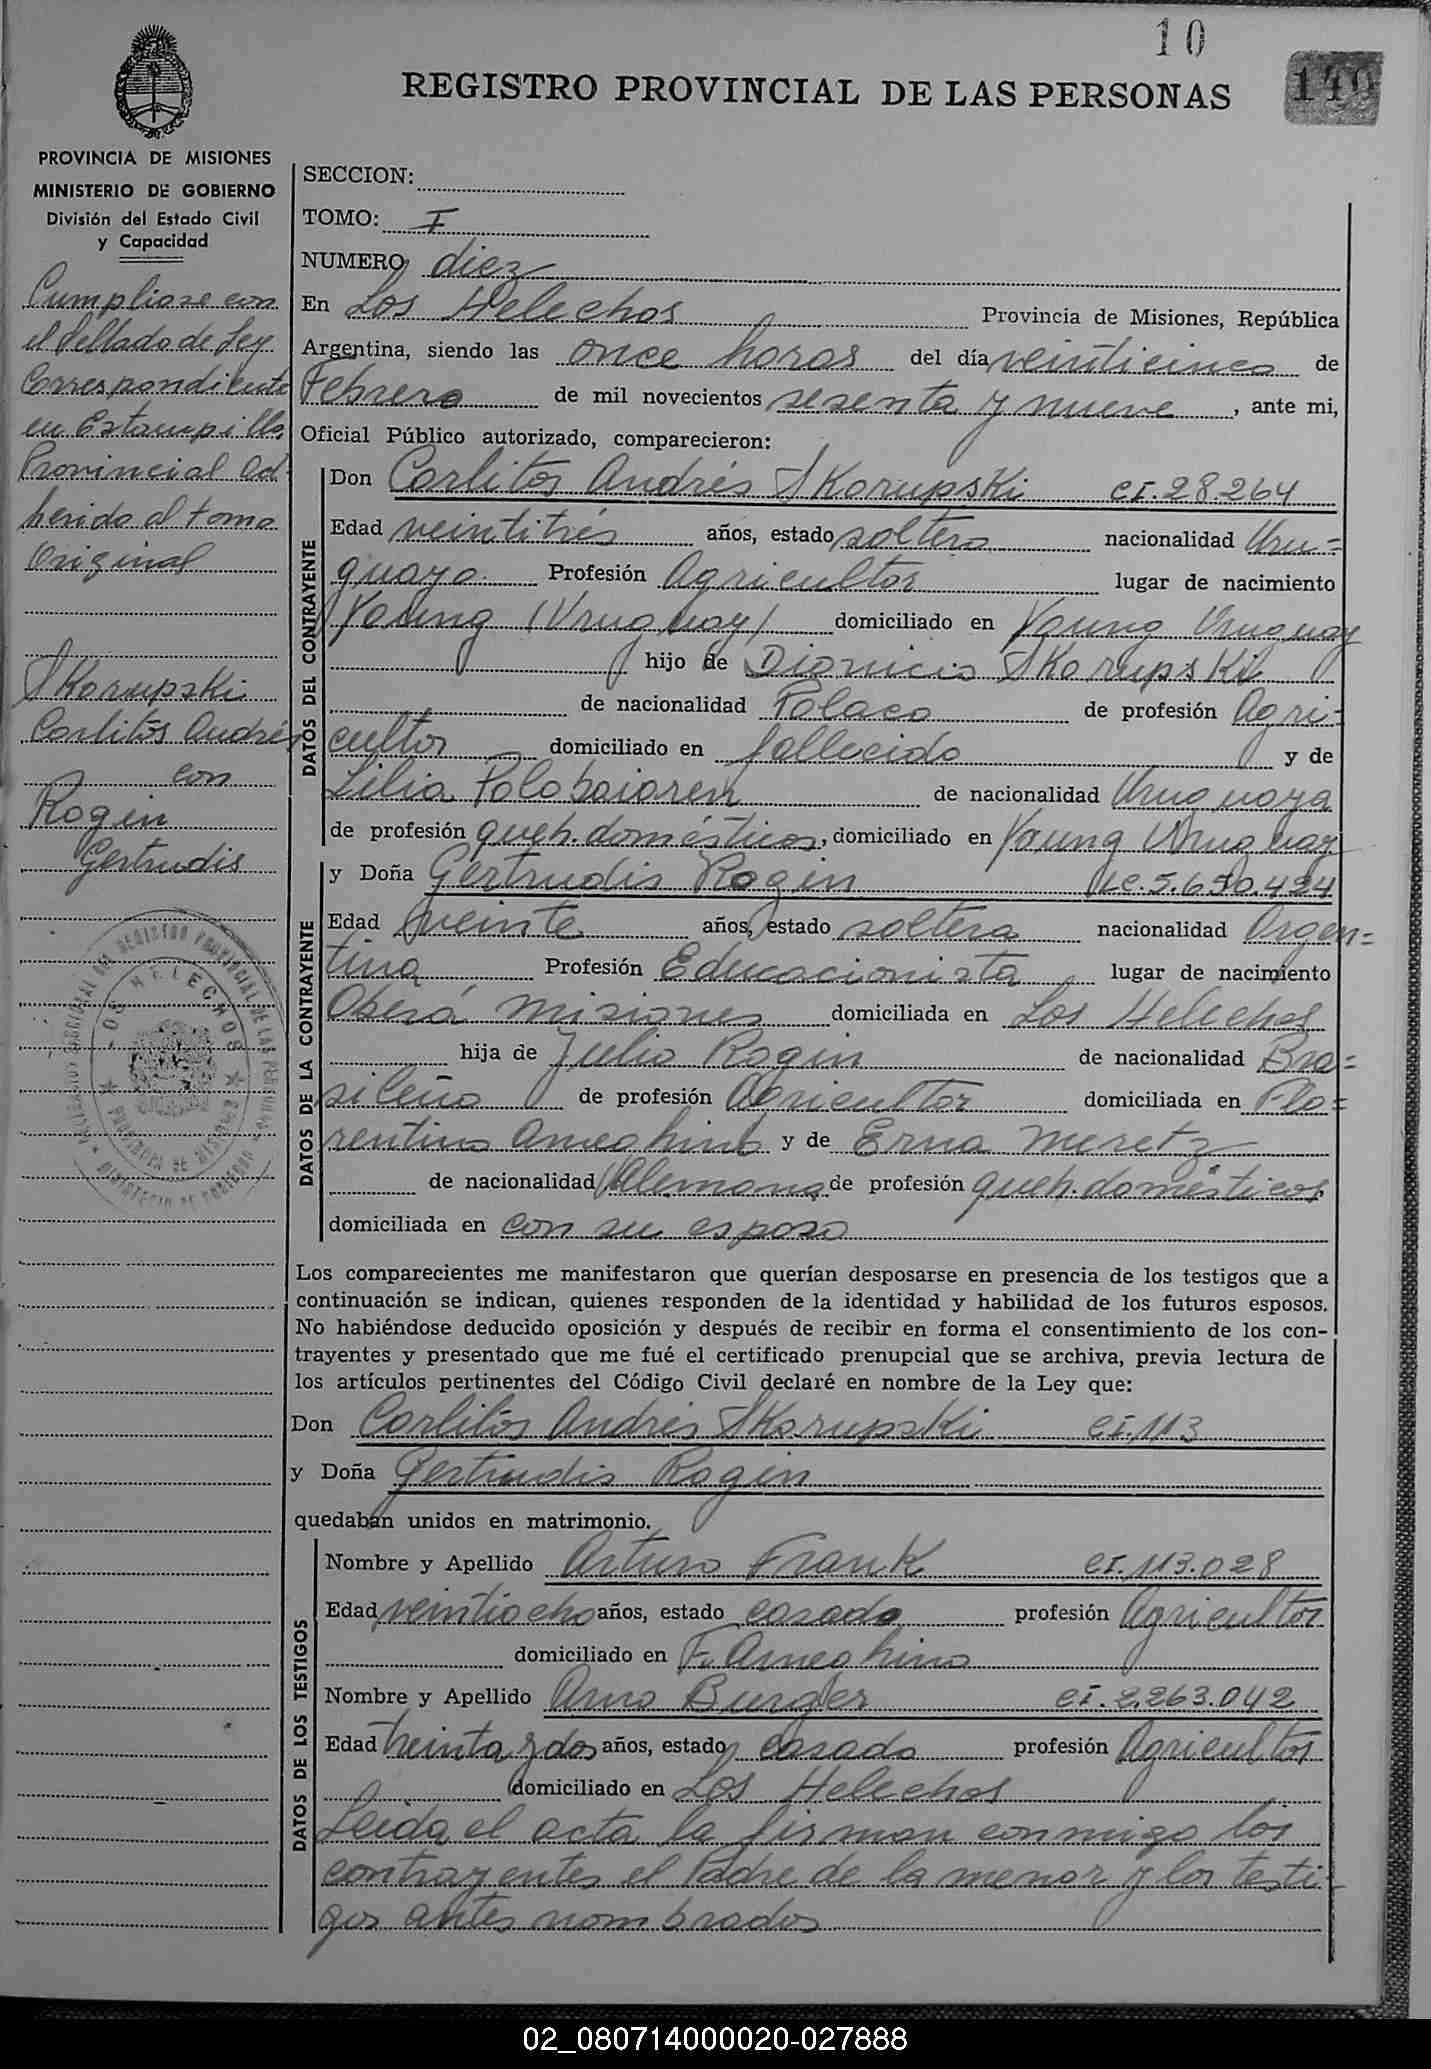 10
140
REGISTRO PROVINCIAL DE LAS PERSONAS
PROVINCIA DE MISIONES
MINISTERIO DE GOBIERNO
División del Estado Civil
y Capacidad
Cumpliose con
el Sellado de Ley
Correspondiente
en Estampilla
Provincial ad
herida al tomo
Original
Skorupski
Carlitos Andrés
con
Rogin
Gertrudis
LOS HELECHOS
SECCION:
TOMO: I
NUMERO diez
En Los Helechos Provincia de Misiones, República
Argentina, siendo las once horas del día veinticinco de
Febrero de mil novecientos sesenta y nueve, ante mi,
Oficial Público autorizado, comparecieron:
DATOS DEL CONTRAYENTE
Don Carlitos Andrés Skorupski CI.28.264
Edad veintitrés años, estado soltero nacionalidad Uru=
guayo Profesión Agricultor lugar de nacimiento
Young (Uruguay) domiciliado en Young Uruguay
hijo de Dionicio Skorupski
de nacionalidad Polaco de profesión Agri=
cultor domiciliado en fallecido y de
Lilia Poloboiaren de nacionalidad Uruguaya
de profesión queh. domésticos, domiciliado en Young Uruguay
DATOS DE LA CONTRAYENTE
y Doña Gertrudis Rogin LC.5.650.424
Edad veinte años, estado soltera nacionalidad Argen=
tina Profesión Educacionista lugar de nacimiento
Oberá Misiones domiciliada en Los Helechos
hija de Julio Rogin de nacionalidad Bra=
sileño de profesión Agricultor domiciliada en Flo=
rentino Ameghino y de Erna Meretz
de nacionalidad Alemana de profesión queh. domésticos
domiciliada en con su esposo
Los comparecientes me manifestaron que querían desposarse en presencia de los testigos que a
continuación se indican, quienes responden de la identidad y habilidad de los futuros esposos.
No habiéndose deducido oposición y después de recibir en forma el consentimiento de los con-
trayentes y presentado que me fué el certificado prenupcial que se archiva, previa lectura de
los artículos pertinentes del Código Civil declaré en nombre de la Ley que:
Don Carlitos Andrés Skorupski CI.113
y Doña Gertrudis Rogin
quedaban unidos en matrimonio.
DATOS DE LOS TESTIGOS
Nombre y Apellido Arturo Frank CI.113.028
Edad veintiocho años, estado casado profesión Agricultor
domiciliado en F. Ameghino
Nombre y Apellido Arno Burger CI.2.263.042
Edad treinta y dos años, estado casado profesión Agricultor
domiciliado en Los Helechos
Leida el acta la firman conmigo los
contrayentes el Padre de la menor y los testi-
gos antes nombrados
02_080714000020-027888